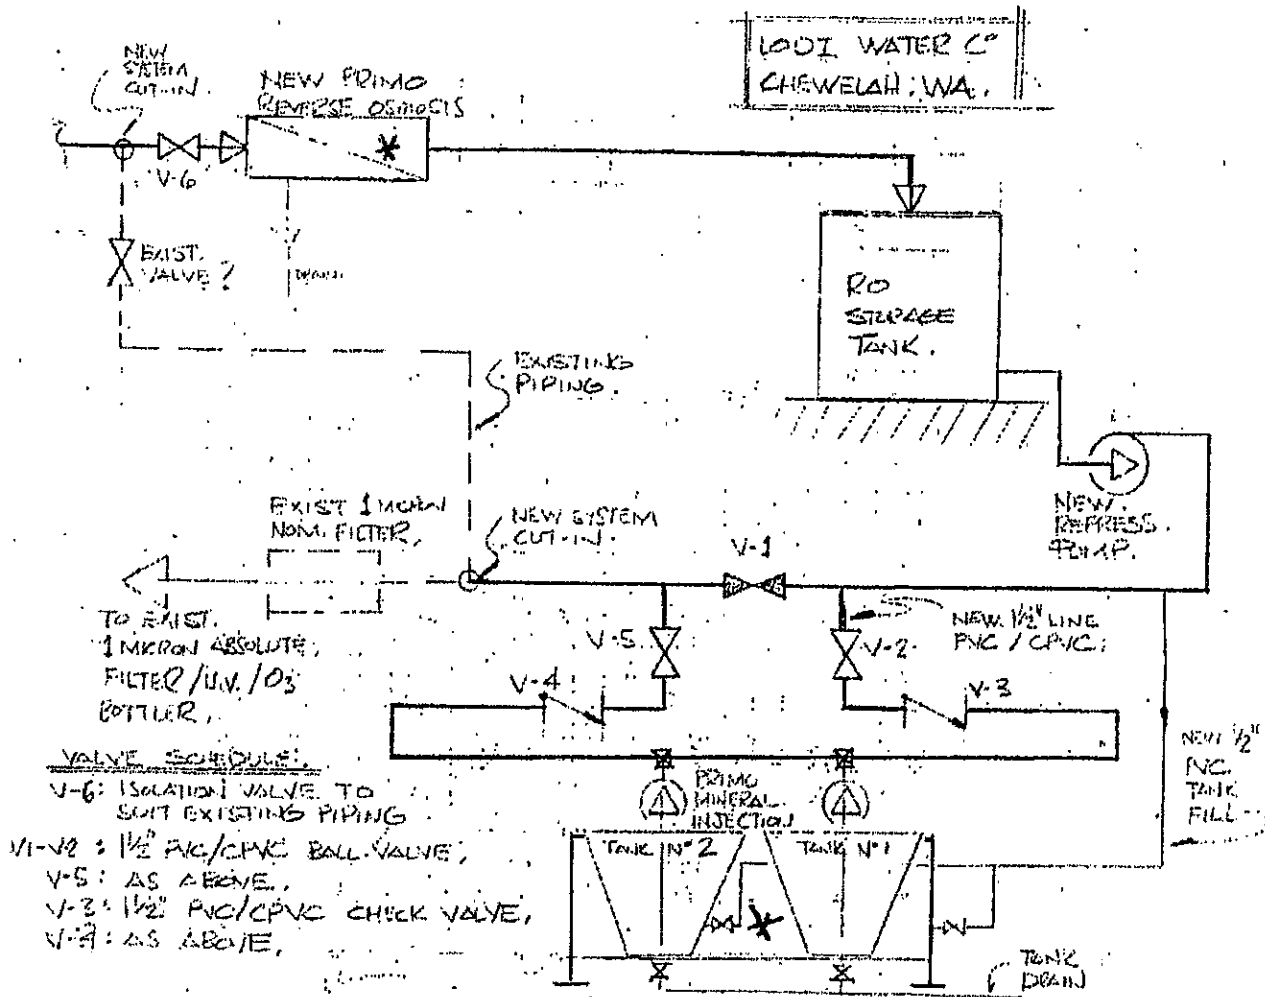 LODI WATER Cº
CHEWELAH, WA.
NEW
SYSTEM
CUT-IN.
NEW PRIMO
REVERSE OSMOSIS
V-6
EXIST.
VALVE ?
DRAIN
RO
STORAGE
TANK.
EXISTING
PIPING.
NEW
REPRESS.
PUMP.
EXIST 1 MICRON
NOM. FILTER,
NEW SYSTEM
CUT-IN.
V-1
TO EXIST.
1 MICRON ABSOLUTE,
FILTER/U.V./O3
BOTTLER,
V-5
V-2
NEW 1½" LINE
PVC / CPVC,
V-4
V-3
NEW ½"
PVC
TANK
FILL
PRIMO
MINERAL
INJECTION
TANK Nº 2
TANK Nº 1
VALVE SCHEDULE:
V-6: ISOLATION VALVE TO
SUIT EXISTING PIPING
V1-V2 : 1½" PVC/CPVC BALL VALVE,
V-5: AS ABOVE,
V-3: 1½" PVC/CPVC CHECK VALVE,
V-4: AS ABOVE,
TANK
DRAIN